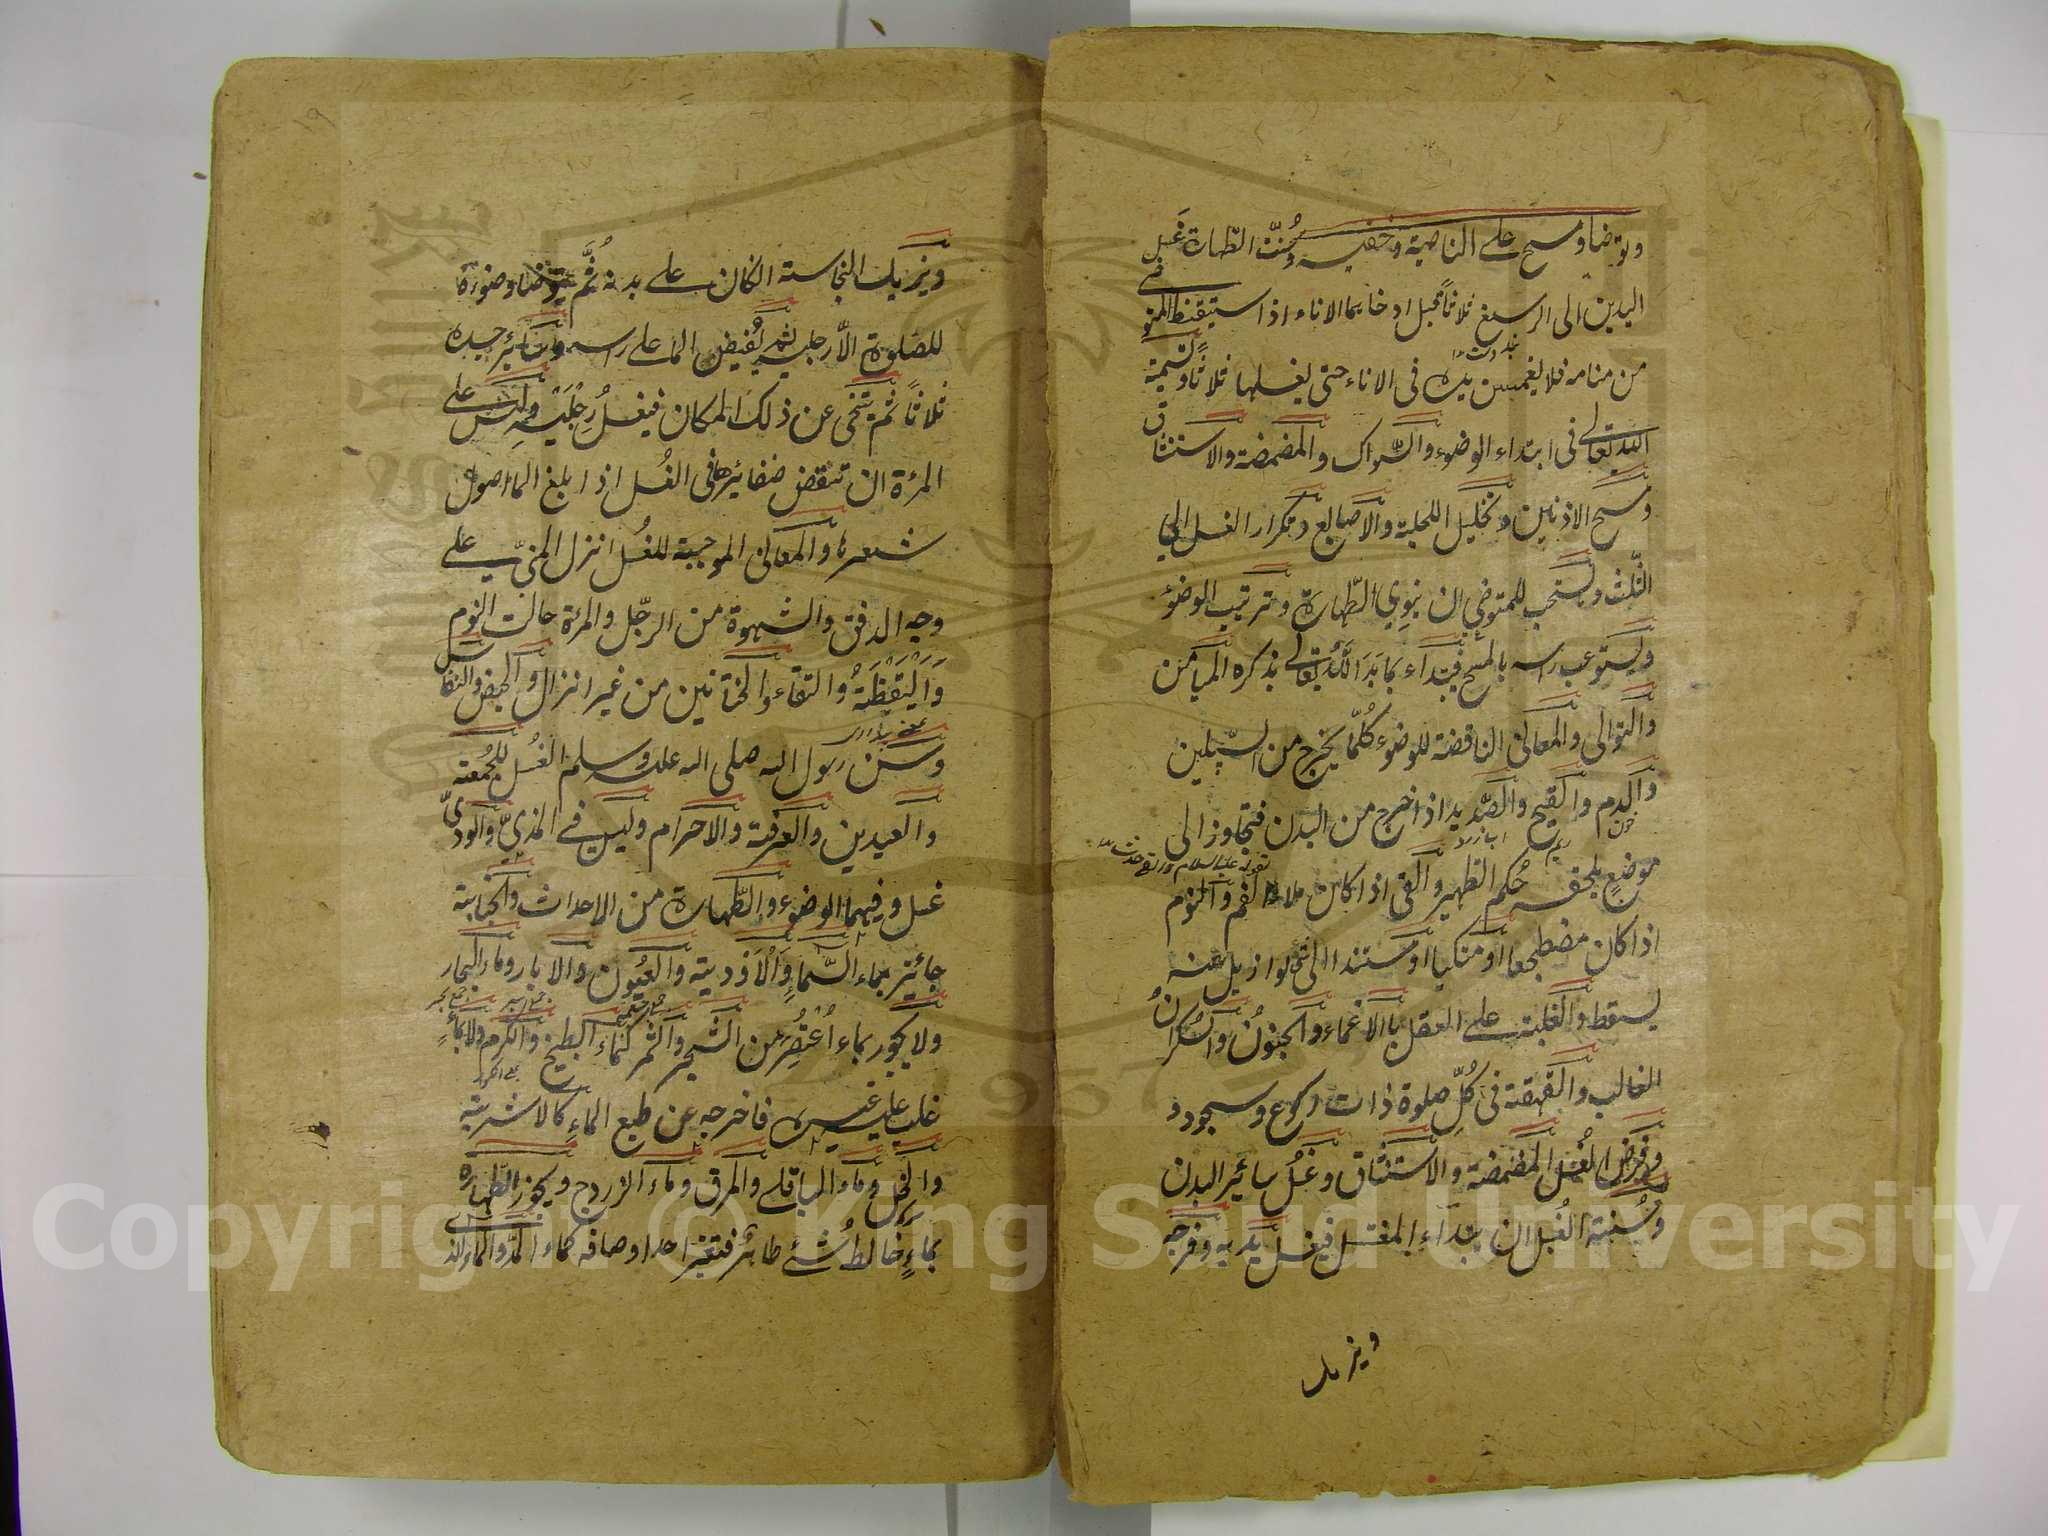 وتوضا ومسح على الناصية وخفيه وسنت الطهارة غسل
اليدين الى الرسغ ثلاثا قبل ادخالهما الاناء اذا استيقظ المتوضى
من منامه فلا يغمسن يده فى الاناء حتى يغسلها ثلاثا وتسمية
الله تعالى فى ابتداء الوضوء والسواك والمضمضة والاستنشاق
ومسح الاذنين وتخليل اللحية والاصابع وتكرار الغسل الى
الثلث ويستحب للمتوضى ان ينوى الطهارة وترتيب الوضوء
ويستوعب راسه بالمسح فيبتداء بما بدا الله تعالى بذكره الميامن
والتوالى والمعانى الناقضة للوضوء كلما يخرج من السبيلين
والدم والقيح والصديد اذا خرج من البدن فتجاوز الى
موضع يلحقه حكم التطهير والقى اذا كان ملاء الفم والنوم
اذا كان مضطجعا او متكيا او مستندا الى شئ لو ازيل عنه
لسقط والغلبة على العقل بالاغماء والجنون والسكران
الغالب والقهقهة فى كل صلوة ذات ركوع وسجود
وفرض الغسل المضمضة والاستنشاق وغسل سائر البدن
وسنة الغسل ان يبتداء المغتسل فيغسل يديه وفرجه
ويزيل
ويزيل النجاسة ان كان على بدنه ثم يتوضا وضوءه
للصلوة الا رجليه ثم يفيض الما على راسه وسائر جسده
ثلاثا ثم يتنحى عن ذلك المكان فيغسل رجليه وليس على
المرءة ان تنقض ضفائرها فى الغسل اذا بلغ الما اصول
شعرها والمعانى الموجبة للغسل انزل المنى على
وجه الدفق والشهوة من الرجل والمرءة حالت النوم
واليقظة والتقاء الختانين من غير انزال والحيض والنفاس
وسن رسول الله صلى الله عليه وسلم الغسل للجمعة
والعيدين والعرفة والاحرام وليس فى المذى والودى
غسل وفيهما الوضوء والطهارة من الاحداث والجنابة
جائز بماء السماء والاودية والعيون والابار وماء البحار
ولا يجوز بماء اعتصر من الشجر والثمر كماء البطيخ والكرم ولا بماء
غلب عليه غيره فاخرجه عن طبع الماء كالاشربة
والخل وماء الباقلى والمرق وماء الزردج ويجوز الطهارة
بماء خالطه شئ طاهر فتغير احد اوصافه كماء المد والماء الذى